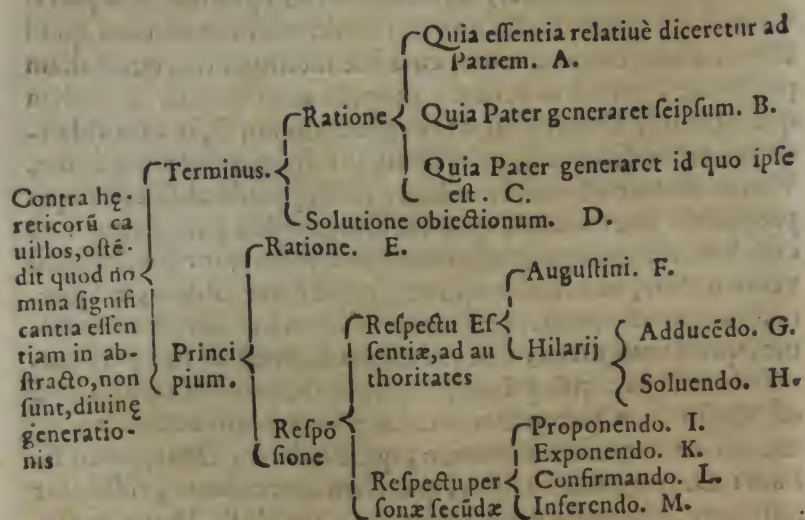 Contra hę-
reticorũ ca
uillos, oſtẽ-
dit quod no
mina ſignifi
cantia eſſen
tiam in ab-
ſtracto, non
ſunt, diuinę
generatio-
nis
Terminus.
Ratione
Quia eſſentia relatiuè diceretur ad
Patrem. A.
Quia Pater generaret ſeipſum. B.
Quia Pater generaret id quo ipſe
eſt. C.
Solutione obiectionum. D.
Princi
pium.
Ratione. E.
Reſpõ
ſione
Reſpectu Eſ
ſentiæ, ad au
thoritates
Auguſtini. F.
Hilarij
Adducẽdo. G.
Soluendo. H.
Reſpectu per
ſonæ ſecũdæ
Proponendo. I.
Exponendo. K.
Confirmando. L.
Inferendo. M.